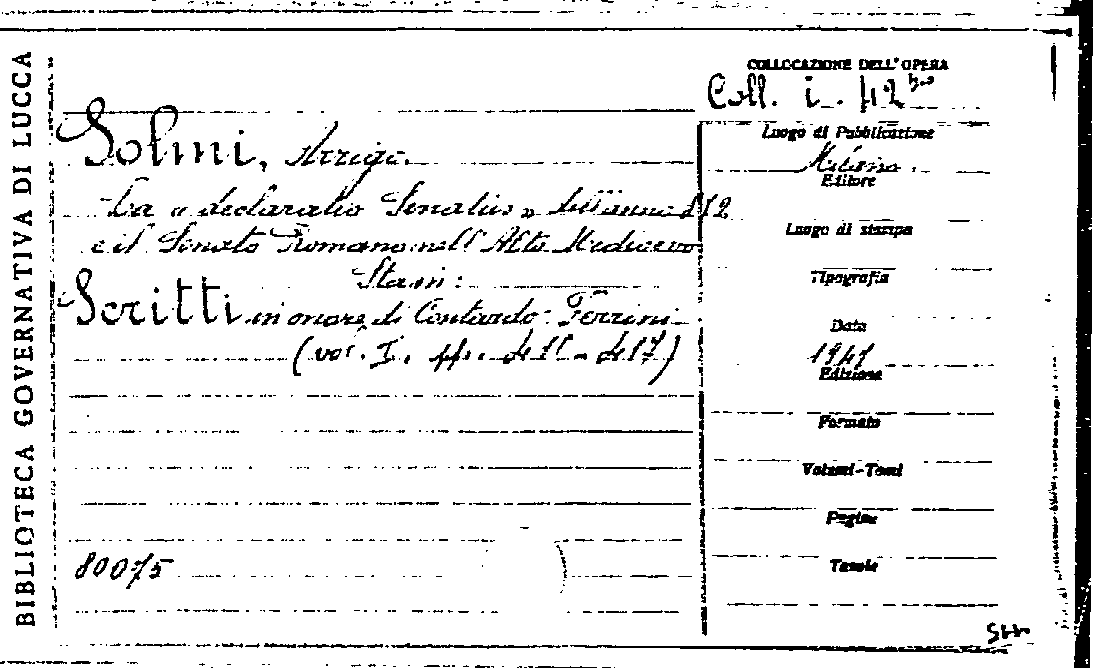 BIBLIOTECA GOVERNATIVA DI LUCCA
COLLOCAZIONE DELL'OPERA
Coll. i. 42
Solmi, Arrigo.
La « declaratio Senatus » dell'anno
e il Senato Romano nell'Alto Medioevo
Stam:
Scritti in onore di Contardo Ferrini
(vol. I, pp.
80075
Luogo di Pubblicazione
Milano.
Editore
Luogo di stampa
Tipografia
Data
1947
Edizione
Formato
Volumi-Tomi
Pagine
Tavole